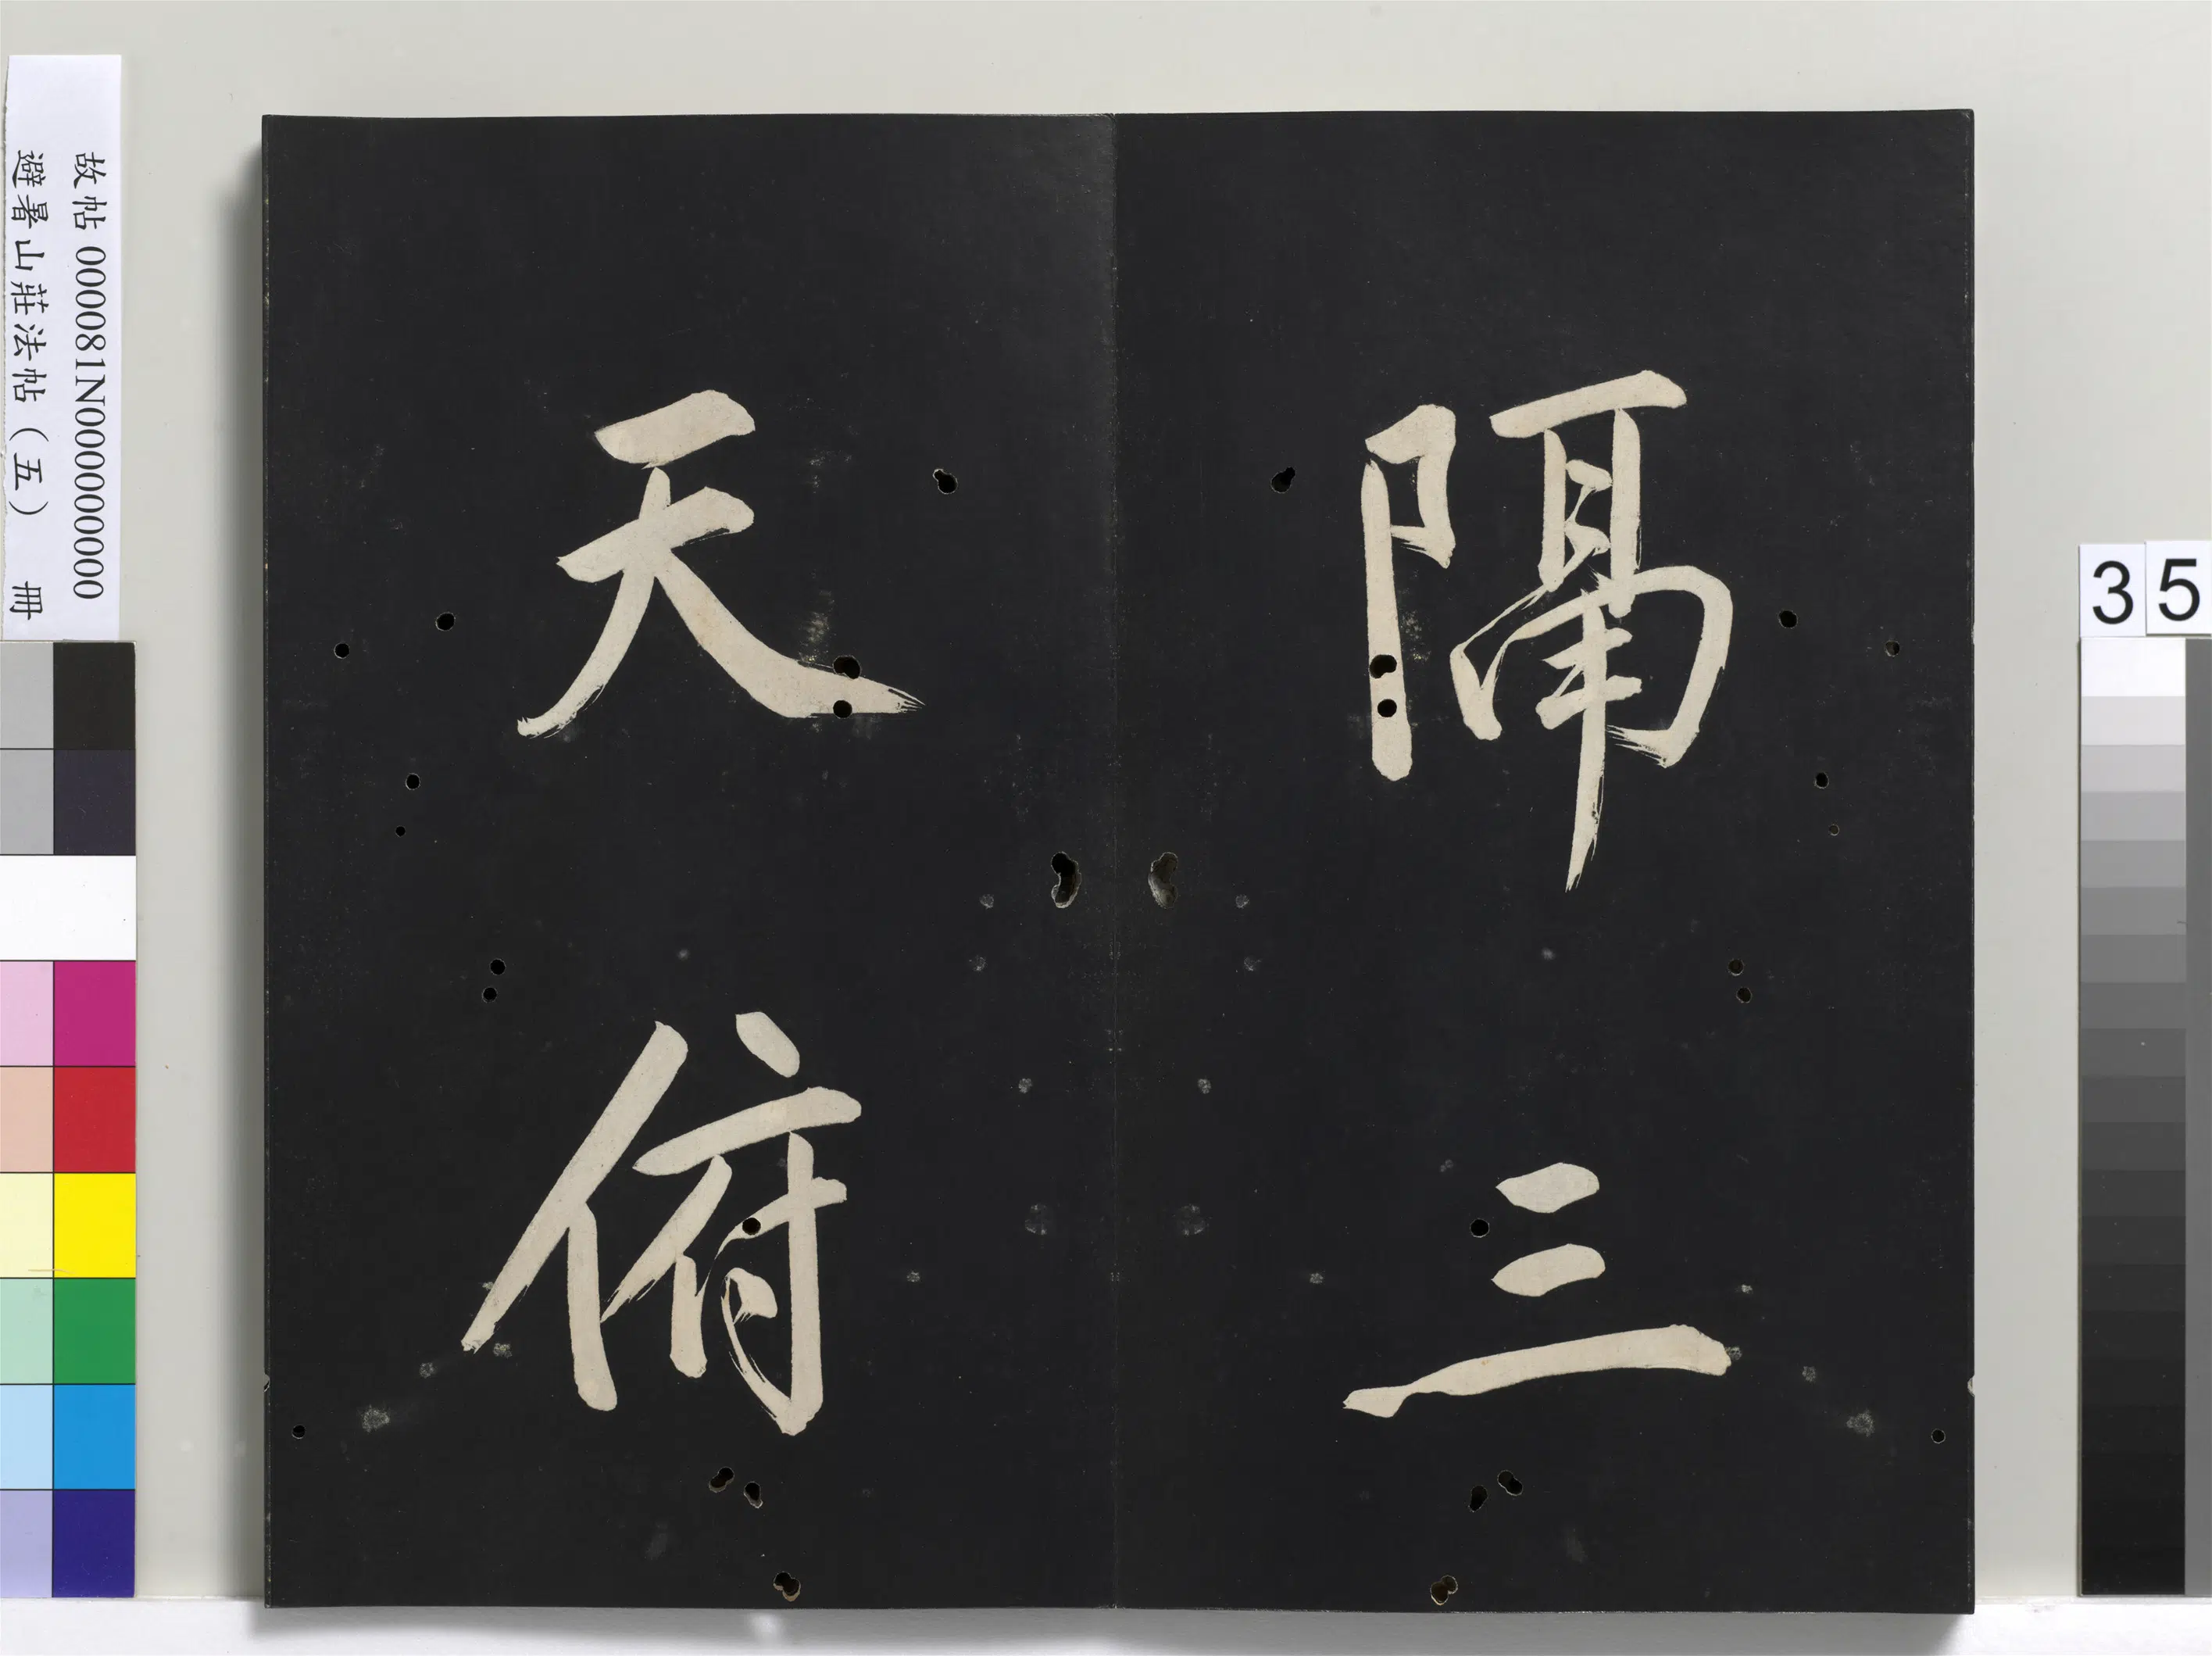 隔三
天俯
故帖 000081N000000000
避暑山莊法帖（五） 冊
35